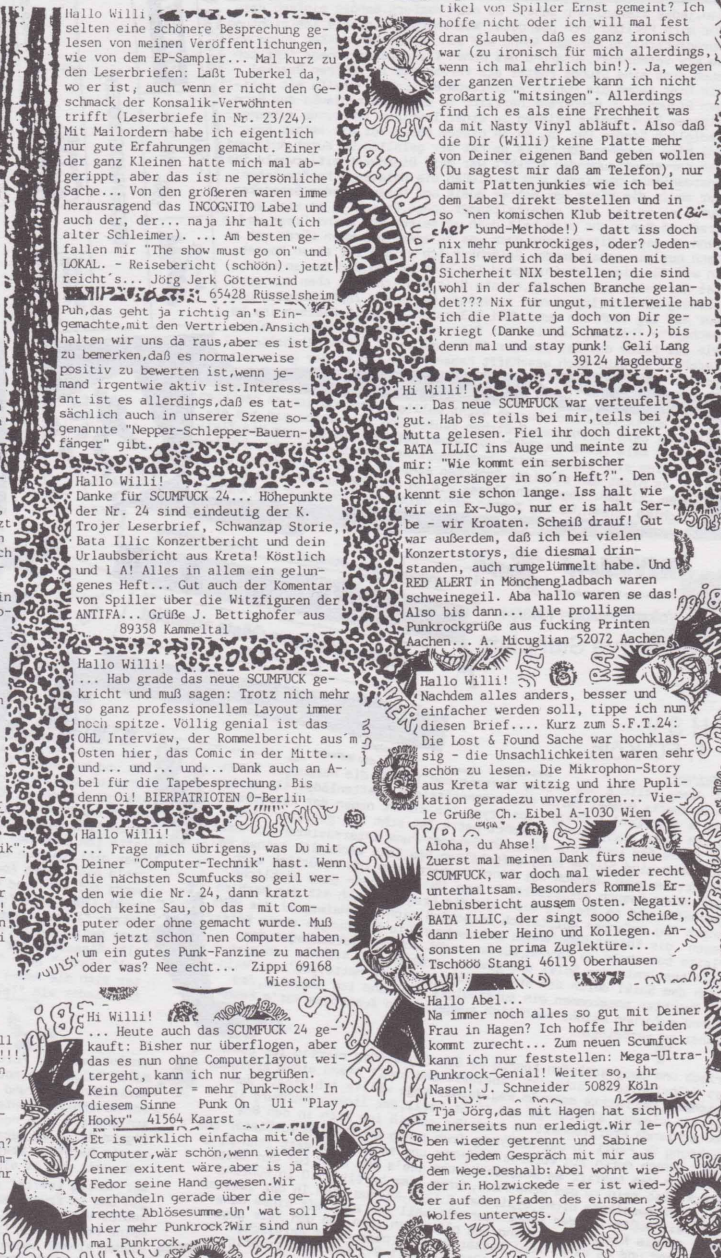 Hallo Willi,
selten eine schönere Besprechung ge-
lesen von meinen Veröffentlichungen,
wie von dem EP-Sampler... Mal kurz zu
den Leserbriefen: Laßt Tuberkel da,
wo er ist, auch wenn er nicht den Ge-
schmack der Konsalik-Verwöhnten
trifft (Leserbriefe in Nr. 23/24).
Mit Mailordern habe ich eigentlich
nur gute Erfahrungen gemacht. Einer
der ganz Kleinen hatte mich mal ab-
gerippt, aber das ist ne persönliche
Sache... Von den größeren waren imme
herausragend das INCOGNITO Label und
auch der, der... naja ihr halt (ich
alter Schleimer). ... Am besten ge-
fallen mir "The show must go on" und
LOKAL. - Reisebericht (schöön). jetzt
reicht´s... Jörg Jerk Götterwind
65428 Rüsselsheim
Puh,das geht ja richtig an's Ein-
gemachte,mit den Vertrieben.Ansich
halten wir uns da raus,aber es ist
zu bemerken,daß es normalerweise
positiv zu bewerten ist,wenn je-
mand irgentwie aktiv ist.Interess-
ant ist es allerdings,daß es tat-
sächlich auch in unserer Szene so-
genannte "Nepper-Schlepper-Bauern-
fänger" gibt.
Hallo Willi!
Danke für SCUMFUCK 24... Höhepunkte
der Nr. 24 sind eindeutig der K.
Trojer Leserbrief, Schwanzap Storie,
Bata Illic Konzertbericht und dein
Urlaubsbericht aus Kreta! Köstlich
und 1 A! Alles in allem ein gelun-
genes Heft... Gut auch der Komentar
von Spiller über die Witzfiguren der
ANTIFA... Grüße J. Bettighofer aus
89358 Kammeltal
Hallo Willi!
... Hab grade das neue SCUMFUCK ge-
kricht und muß sagen: Trotz nich mehr
so ganz professionellem Layout immer
noch spitze. Völlig genial ist das
OHL Interview, der Rommelbericht aus´m
Osten hier, das Comic in der Mitte...
und... und... und... Dank auch an A-
bel für die Tapebesprechung. Bis
denn Oi! BIERPATRIOTEN O-Berlin
Hallo Willi!
... Frage mich übrigens, was Du mit
Deiner "Computer-Technik" hast. Wenn
die nächsten Scumfucks so geil wer-
den wie die Nr. 24, dann kratzt
doch keine Sau, ob das mit Com-
puter oder ohne gemacht wurde. Muß
man jetzt schon `nen Computer haben,
um ein gutes Punk-Fanzine zu machen
oder was? Nee echt... Zippi 69168
Wiesloch
Hi Willi!
... Heute auch das SCUMFUCK 24 ge-
kauft: Bisher nur überflogen, aber
das es nun ohne Computerlayout wei-
tergeht, kann ich nur begrüßen.
Kein Computer = mehr Punk-Rock! In
diesem Sinne Punk On Uli "Play
Hooky" 41564 Kaarst
Et is wirklich einfacha mit'de
Computer,wär schön,wenn wieder
einer exitent wäre,aber is ja
Fedor seine Hand gewesen.Wir
verhandeln gerade über die ge-
rechte Ablösesumme.Un' wat soll
hier mehr Punkrock?Wir sind nun
mal Punkrock.
tikel von Spiller Ernst gemeint? Ich
hoffe nicht oder ich will mal fest
dran glauben, daß es ganz ironisch
war (zu ironisch für mich allerdings,
wenn ich mal ehrlich bin!). Ja, wegen
der ganzen Vertriebe kann ich nicht
großartig "mitsingen". Allerdings
find ich es als eine Frechheit was
da mit Nasty Vinyl abläuft. Also daß
die Dir (Willi) keine Platte mehr
von Deiner eigenen Band geben wollen
(Du sagtest mir daß am Telefon), nur
damit Plattenjunkies wie ich bei
dem Label direkt bestellen und in
so `nen komischen Klub beitreten (Bü-
cher bund-Methode!) - datt iss doch
nix mehr punkrockiges, oder? Jeden-
falls werd ich da bei denen mit
Sicherheit NIX bestellen; die sind
wohl in der falschen Branche gelan-
det??? Nix für ungut, mitlerweile hab
ich die Platte ja doch von Dir ge-
kriegt (Danke und Schmatz...); bis
denn mal und stay punk! Geli Lang
39124 Magdeburg
Hi Willi!
... Das neue SCUMFUCK war verteufelt
gut. Hab es teils bei mir,teils bei
Mutta gelesen. Fiel ihr doch direkt
BATA ILLIC ins Auge und meinte zu
mir: "Wie kommt ein serbischer
Schlagersänger in so´n Heft?". Den
kennt sie schon lange. Iss halt wie
wir ein Ex-Jugo, nur er is halt Ser-
be - wir Kroaten. Scheiß drauf! Gut
war außerdem, daß ich bei vielen
Konzertstorys, die diesmal drin-
standen, auch rumgelümmelt habe. Und
RED ALERT in Mönchengladbach waren
schweinegeil. Aba hallo waren se das!
Also bis dann... Alle prolligen
Punkrockgrüße aus fucking Printen
Aachen... A. Micuglian 52072 Aachen
Hallo Willi!
Nachdem alles anders, besser und
einfacher werden soll, tippe ich nun
diesen Brief.... Kurz zum S.F.T.24:
Die Lost & Found Sache war hochklas-
sig - die Unsachlichkeiten waren sehr
schön zu lesen. Die Mikrophon-Story
aus Kreta war witzig und ihre Pupli-
kation geradezu unverfroren... Vie-
le Grüße Ch. Eibel A-1030 Wien
Aloha, du Ahse!
Zuerst mal meinen Dank fürs neue
SCUMFUCK, war doch mal wieder recht
unterhaltsam. Besonders Rommels Er-
lebnisbericht aussem Osten. Negativ:
BATA ILLIC, der singt sooo Scheiße,
dann lieber Heino und Kollegen. An-
sonsten ne prima Zuglektüre...
Tschööö Stangi 46119 Oberhausen
Hallo Abel...
Na immer noch alles so gut mit Deiner
Frau in Hagen? Ich hoffe Ihr beiden
kommt zurecht... Zum neuen Scumfuck
kann ich nur feststellen: Mega-Ultra-
Punkrock-Genial! Weiter so, ihr
Nasen! J. Schneider 50829 Köln
Tja Jörg,das mit Hagen hat sich
meinerseits nun erledigt.Wir le-
ben wieder getrennt und Sabine
geht jedem Gespräch mit mir aus
dem Wege.Deshalb: Abel wohnt wie-
der in Holzwickede = er ist wied-
er auf den Pfaden des einsamen
Wolfes unterwegs.
PUNK
ROCK